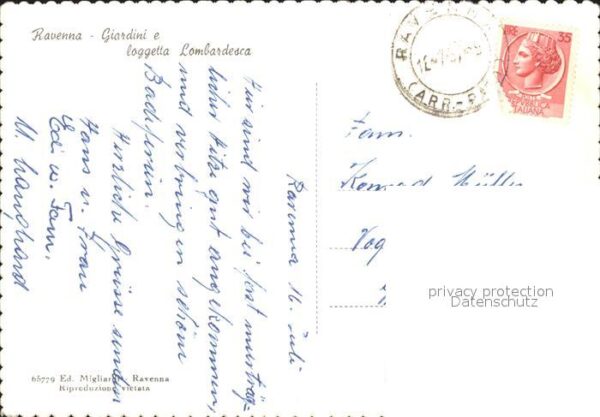 Ravenna - Giardini e
loggetta Lombardesca
Ravenna 16. Juli
Hier sind wir bei fast
licher Hitze gut angekommen,
und verbringen schöne
Badeferien.
Herzliche Grüsse senden
Hans u. Frau
Edi u. Fam.
65779 Ed. Migliar - Ravenna
Riproduzione vietata
RAVENNA
(ARR-PAR
LIRE 35
REPUBBLICA
ITALIANA
Fam.
Konrad Müller
Vog
privacy protection
Datenschutz